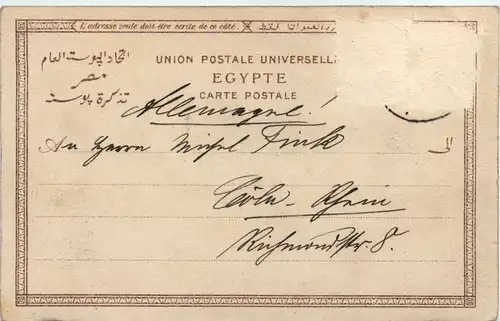 L'adresse seule doit être écrite de ce côté.
اتحاد البوستة العام
مصر
تذكرة بوسته
UNION POSTALE UNIVERSELL
EGYPTE
CARTE POSTALE
Allemagne!
An Herrn Michel Fink
Cöln-Rhein
Richmondstr. 8.